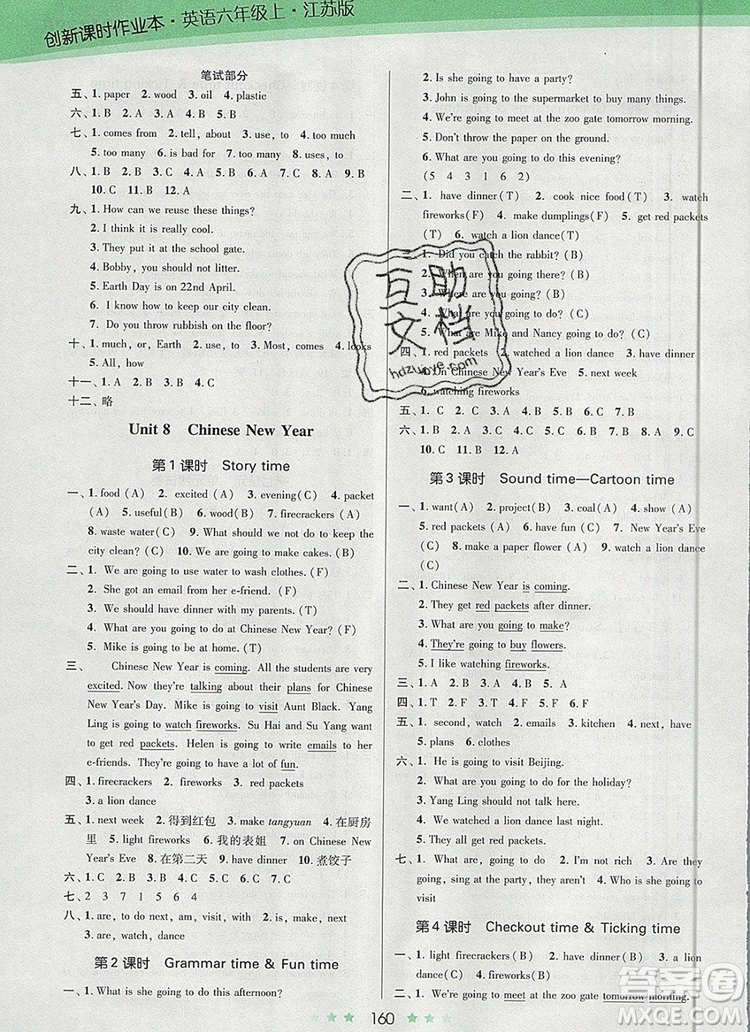 创新课时作业本·英语六年级上·江苏版
笔试部分
五、1. paper 2. wood 3. oil 4. plastic
六、1. C 2. B 3. C 4. A 5. B
七、1. comes from 2. tell, about 3. use, to 4. too much
5. too many 6. is bad for 7. use, to
八、1. B 2. B 3. C 4. A 5. B 6. A 7. A 8. C 9. B
10. C 11. B 12. A
九、1. How can we reuse these things?
2. I think it is really cool.
3. They put it at the school gate.
4. Bobby, you should not sleep.
5. Earth Day is on 22nd April.
6. I know how to keep our city clean.
7. Do you throw rubbish on the floor?
十、1. much, or, Earth 2. use, to 3. Most, comes 4. looks
5. All, how
十一、1. C 2. A 3. B 4. C
十二、略
Unit 8 Chinese New Year
第1课时 Story time
一、1. food (A) 2. excited (A) 3. evening(C) 4. packet
(A) 5. useful(B) 6. wood(B) 7. firecrackers (A)
8. waste water(C) 9. What should we not do to keep the
city clean? (C) 10. We are going to make cakes. (B)
二、1. We are going to use water to wash clothes. (F)
2. She got an email from her e-friend. (F)
3. We should have dinner with my parents. (T)
4. What are you going to do at Chinese New Year? (T)
5. Mike is going to be at home. (F)
三、 Chinese New Year is coming. All the students are very
excited. Now they're talking about their plans for Chinese
New Year's Day. Mike is going to visit Aunt Black. Yang
Ling is going to watch fireworks. Su Hai and Su Yang want
to get red packets. Helen is going to write emails to her
e-friends. They are going to have a lot of fun.
四、1. firecrackers 2. fireworks 3. red packets
4. a lion dance
五、1. next week 2. 得到红包 3. make tangyuan 4. 在厨房
里 5. light fireworks 6. 我的表姐 7. on Chinese New
Year's Eve 8. 在第二天 9. have dinner 10. 煮饺子
六、1. C 2. A 3. B 4. B 5. C 6. A 7. C
七、2 3 7 1 5 6 4
八、1. are, to do 2. next, am, visit 3. is, with, going, with
4. are, have
第2课时 Grammar time & Fun time
一、1. What is Nancy going to do this afternoon?
2. Is she going to have a party?
3. John is going to the supermarket to buy many things.
4. We're going to meet at the zoo gate tomorrow morning.
5. Don't throw the paper on the ground.
6. What are you going to do this evening?
(5 4 3 1 6 2)
二、1. have dinner(T) 2. cook nice food (T) 3. watch
fireworks(F) 4. make dumplings(F) 5. get red packets
(T) 6. watch a lion dance(T)
1. Did you catch the rabbit? (B)
are you going there? (B)
are you going? (B)
are you going to do? (A)
are Mike and Nancy going to do? (A)
四、1. red packets 2. watched a lion dance 3.
4. On Chinese New Year's Eve 5. next week
6. watching fireworks
五、1. C 2. C 3. A 4. B 5. C 6. C
六、1. B 2. C 3. B 4. C 5. B 6. C 7. A 8. C 9. A
10. C 11. B 12. A
第3课时 Sound time—Cartoon time
一、1. want(A) 2. project(B) 3. coal(A) 4. show (A)
5. red packets (A) 6. have fun (C) 7. New Year's Eve
(C) 8. make a paper flower (A) 9. watch a lion dance
(C)
二、1. Chinese New Year is coming.
2. They get red packets after dinner.
3. What are you going to make?
4. They're going to buy flowers.
5. I like watching fireworks.
三、1. A 2. C 3. B 4. A 5. A
四、1. T 2. F 3. F 4. T 5. F
五、1. second, watch 2. emails 3. kitchen 4. next, have
5. plans 6. clothes
六、1. He is going to visit Beijing.
2. What are you going to do for the holiday?
3. Yang Ling should not talk here.
4. We watched a lion dance last night.
5. They all get red packets.
七、1. What are, going to do 2. I'm not rich 3. make some
cakes 4. What are, going to do 5. We are going to
visit
第4课时 Checkout time & Ticking time
一、1. light firecrackers 2. flowers 3. a lion dance
4. fireworks 5. red packets
二、1. We're going to meet at the zoo gate tomorrow morning.
160
互助文档
hdzuoye.com
答案圈
MXQE.COM